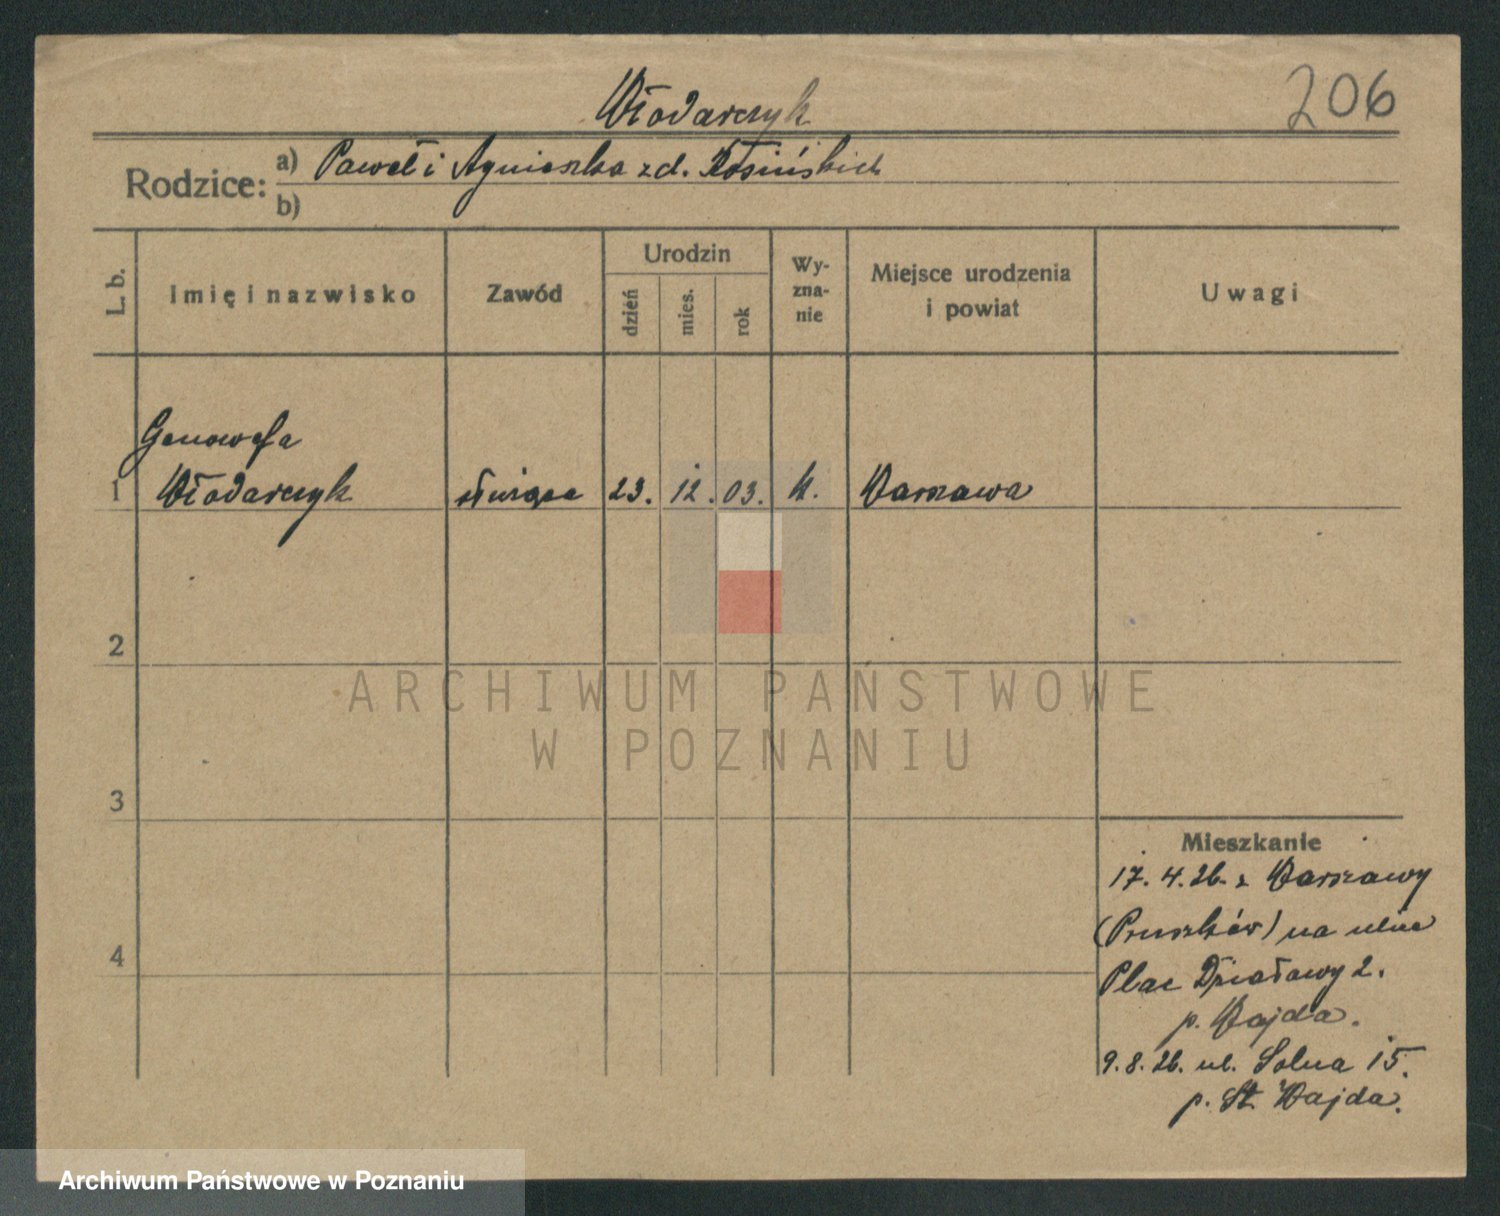 Włodarczyk
206
Rodzice:
a) Paweł i Agnieszka z d. Kosińskich
b)
L. b.
Imię i nazwisko
Zawód
Urodzin
dzień
mies.
rok
Wy-
zna-
nie
Miejsce urodzenia
i powiat
Uwagi
Genowefa
1 Włodarczyk służąca 23. 12. 03. k. Warszawa
2
3
4
ARCHIWUM PAŃSTWOWE
W POZNANIU
Mieszkanie
17. 4. 26. z Warszawy
(Pruszków) na ulice
Plac Działowy 2.
p. Wajda.
9. 8. 26. ul. Solna 15.
p. St. Wajda.
Archiwum Państwowe w Poznaniu